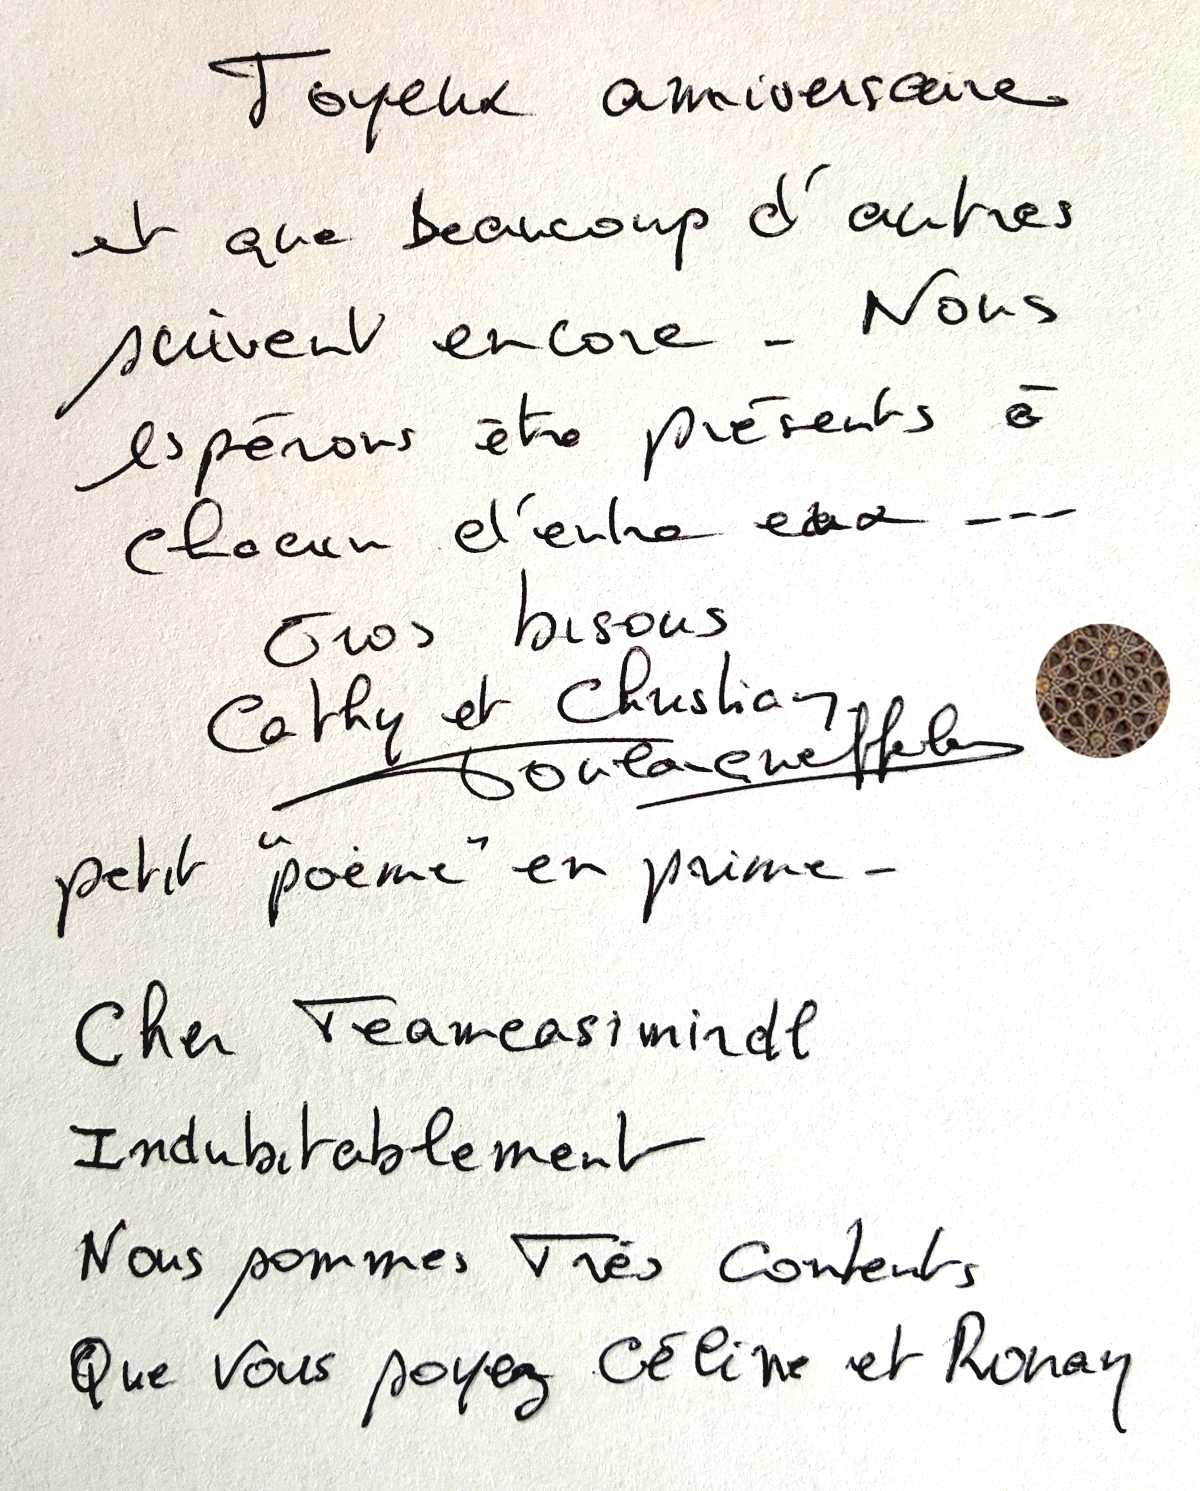 Joyeux anniversaire
et que beaucoup d'autres
suivent encore - Nous
espérons être présents à
chacun d'entre eux ---
Gros bisous
Cathy et Christian
petit "poème" en prime -
Cher Teameasimirdl
Indubitablement
Nous sommes Très Contents
Que Vous soyez Céline et Ronan